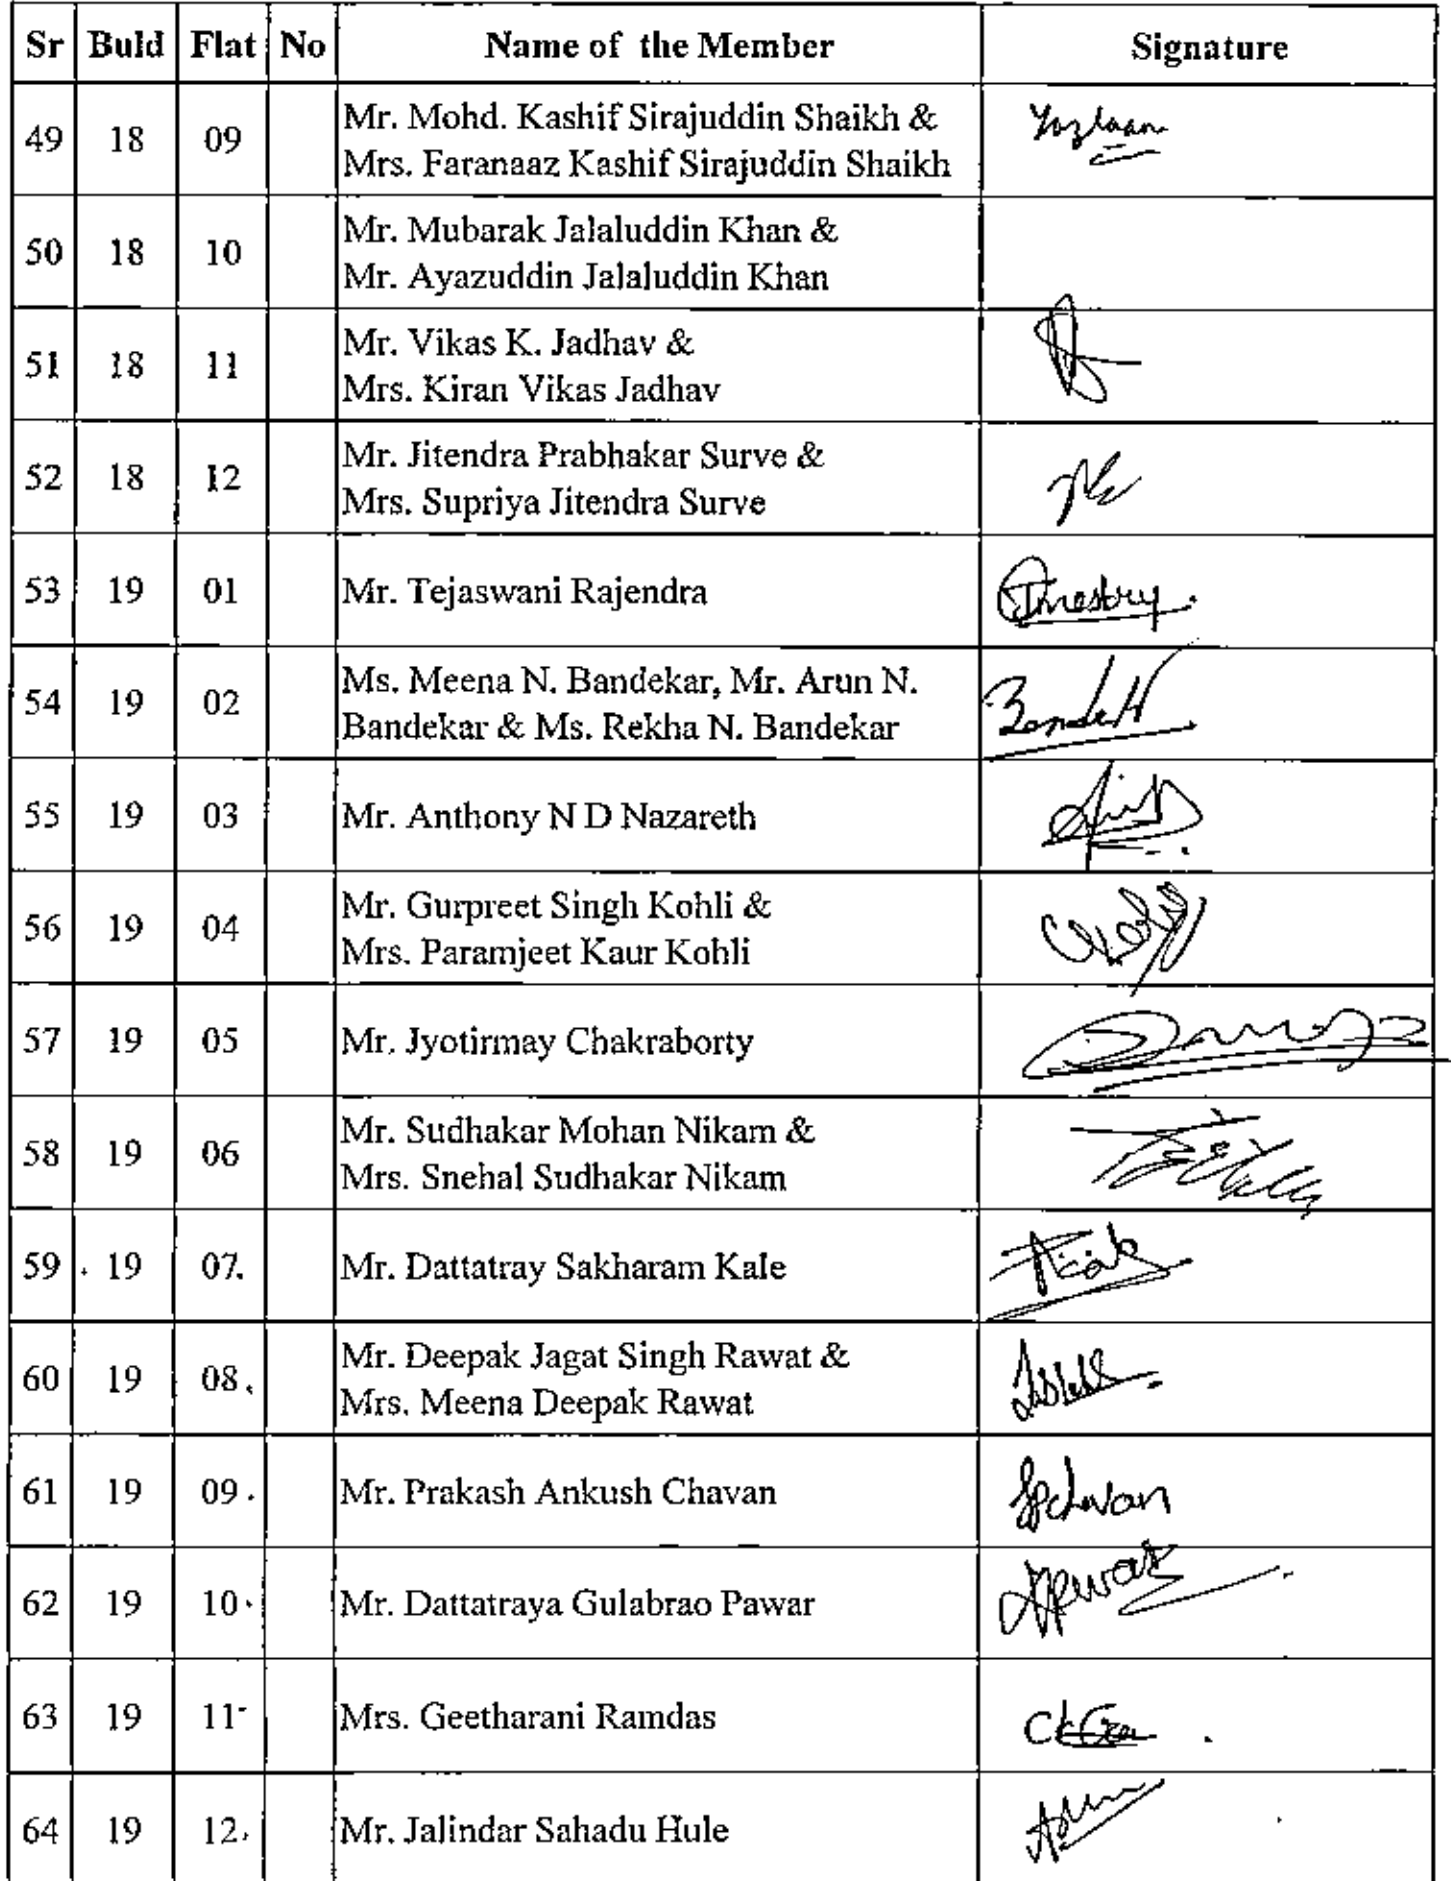 Sr Buld Flat No Name of the Member Signature
49 18 09 Mr. Mohd. Kashif Sirajuddin Shaikh &
Mrs. Faranaaz Kashif Sirajuddin Shaikh
50 18 10 Mr. Mubarak Jalaluddin Khan &
Mr. Ayazuddin Jalaluddin Khan
51 18 11 Mr. Vikas K. Jadhav &
Mrs. Kiran Vikas Jadhav
52 18 12 Mr. Jitendra Prabhakar Surve &
Mrs. Supriya Jitendra Surve
53 19 01 Mr. Tejaswani Rajendra
54 19 02 Ms. Meena N. Bandekar, Mr. Arun N.
Bandekar & Ms. Rekha N. Bandekar
55 19 03 Mr. Anthony N D Nazareth
56 19 04 Mr. Gurpreet Singh Kohli &
Mrs. Paramjeet Kaur Kohli
57 19 05 Mr. Jyotirmay Chakraborty
58 19 06 Mr. Sudhakar Mohan Nikam &
Mrs. Snehal Sudhakar Nikam
59 19 07 Mr. Dattatray Sakharam Kale
60 19 08 Mr. Deepak Jagat Singh Rawat &
Mrs. Meena Deepak Rawat
61 19 09 Mr. Prakash Ankush Chavan
62 19 10 Mr. Dattatraya Gulabrao Pawar
63 19 11 Mrs. Geetharani Ramdas
64 19 12 Mr. Jalindar Sahadu Hule